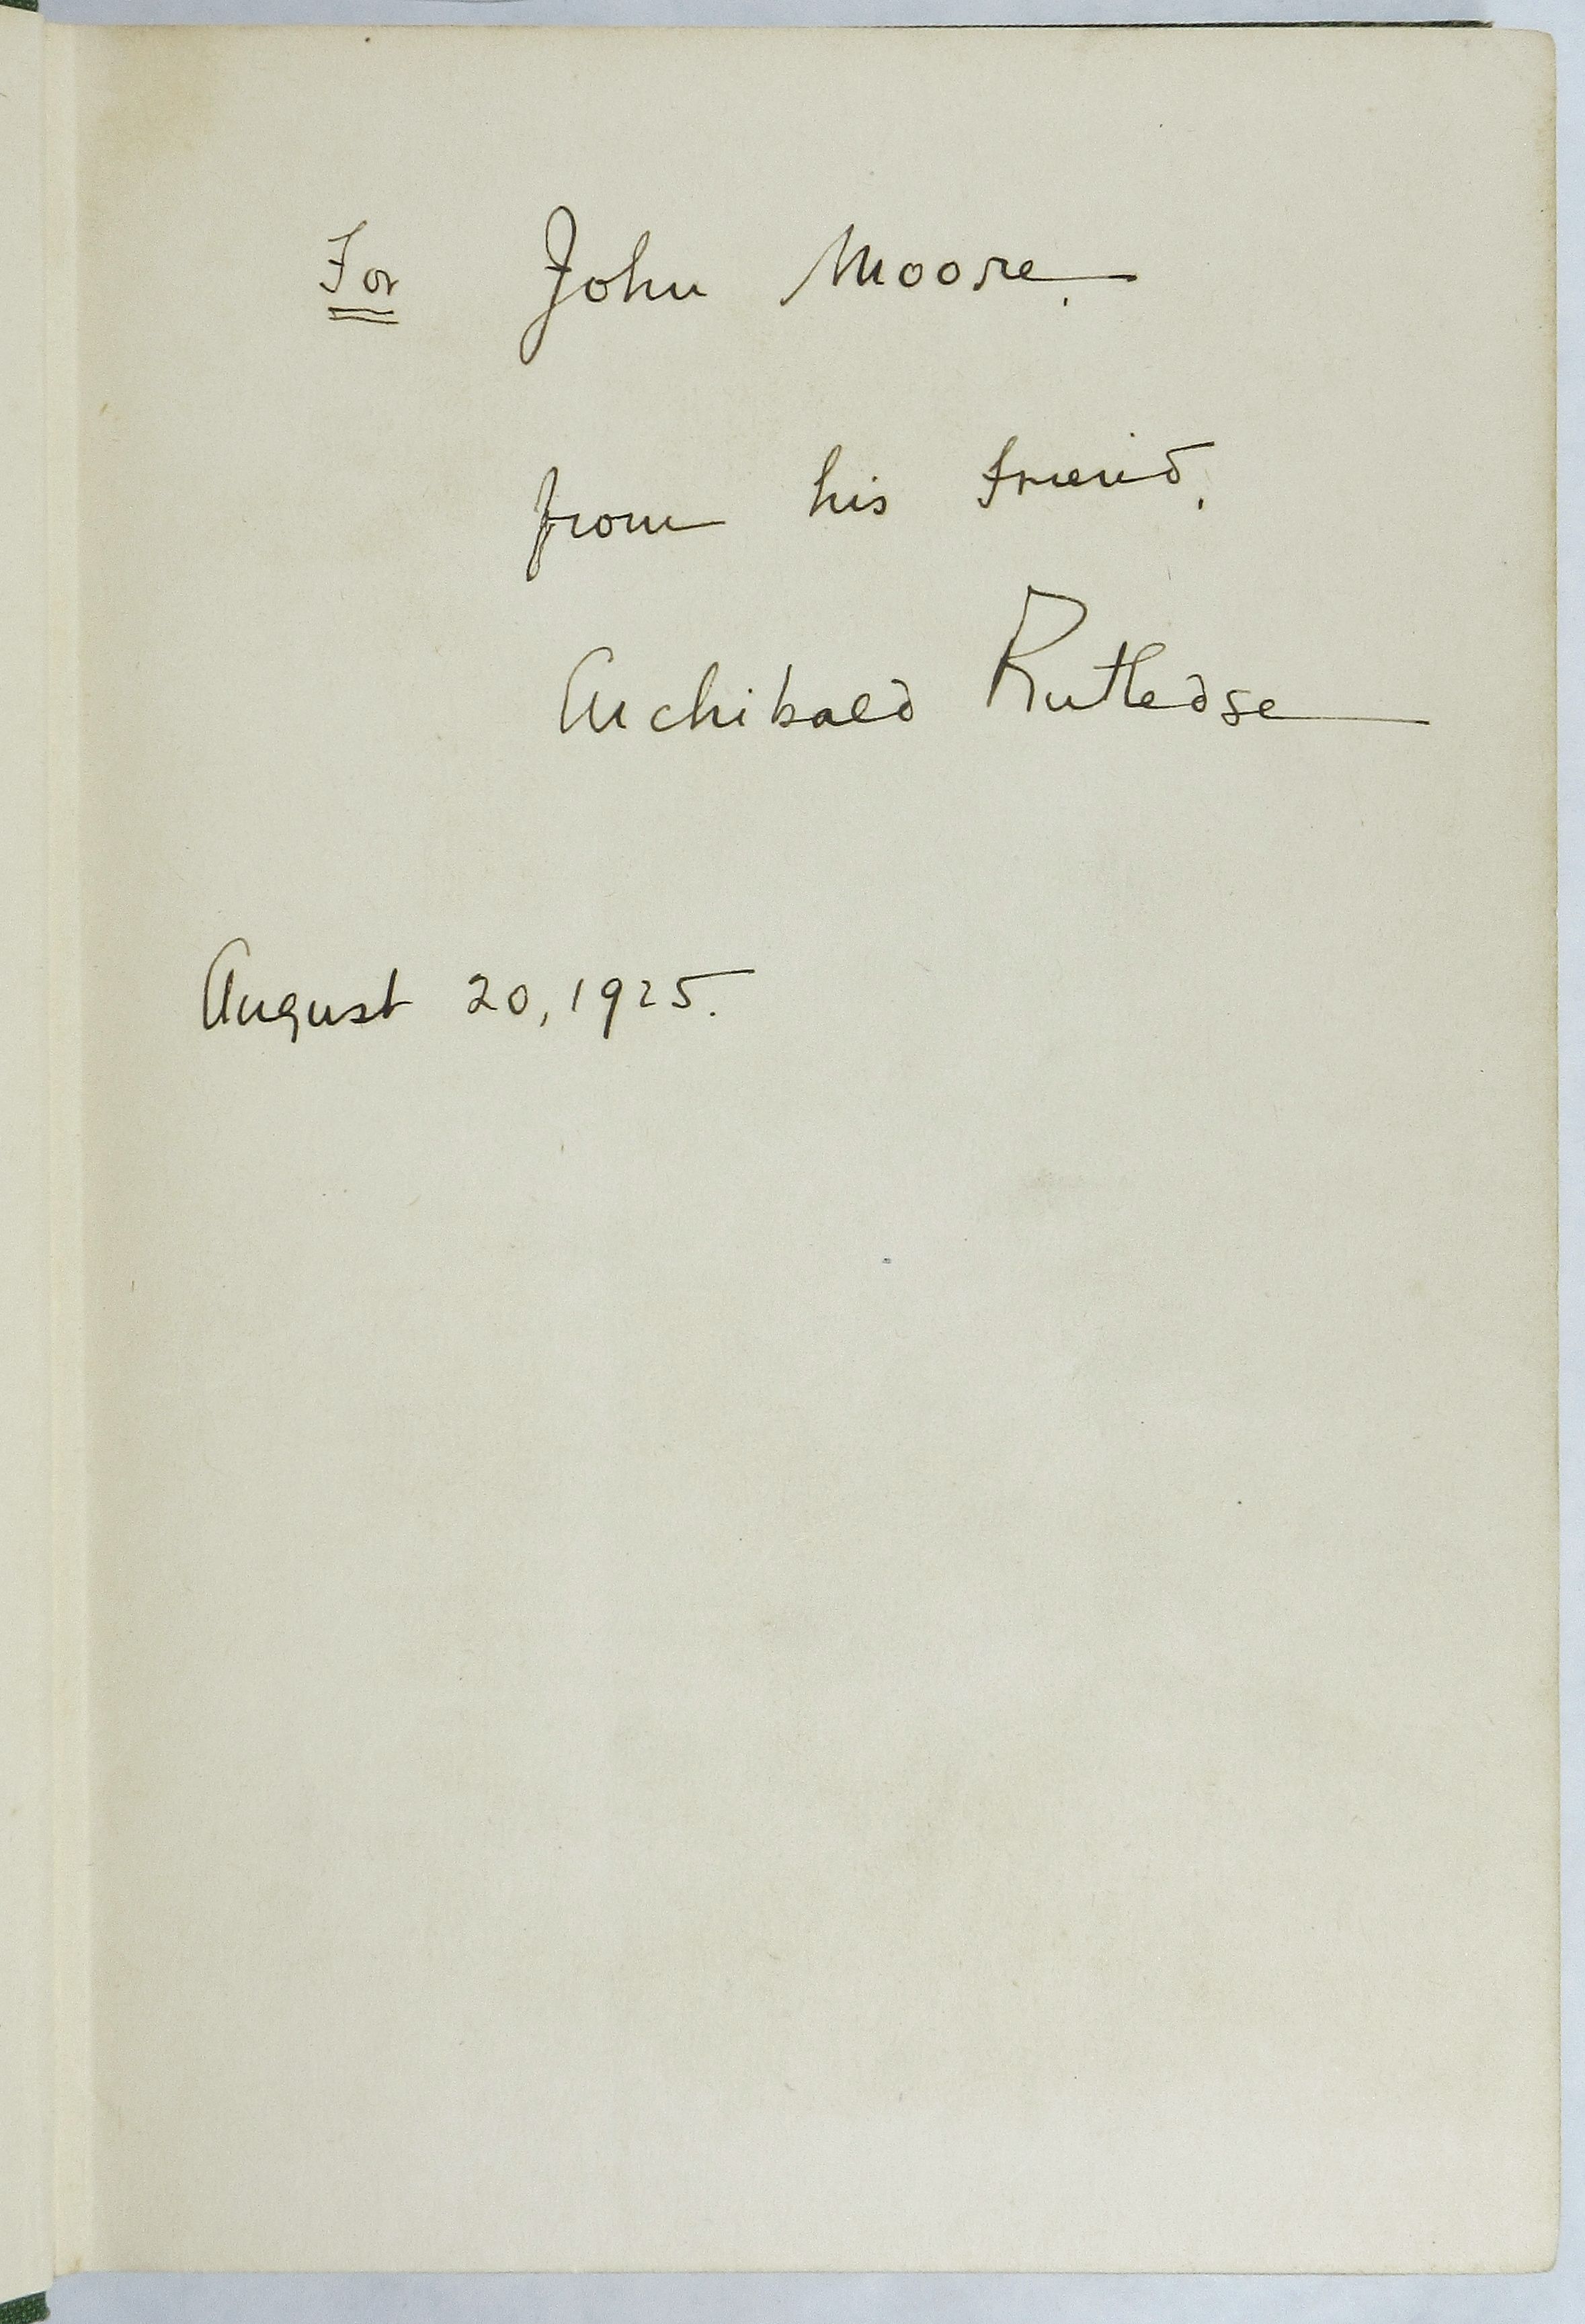 For John Moore.
from his friend,
Archibald Rutledge
August 20, 1925.